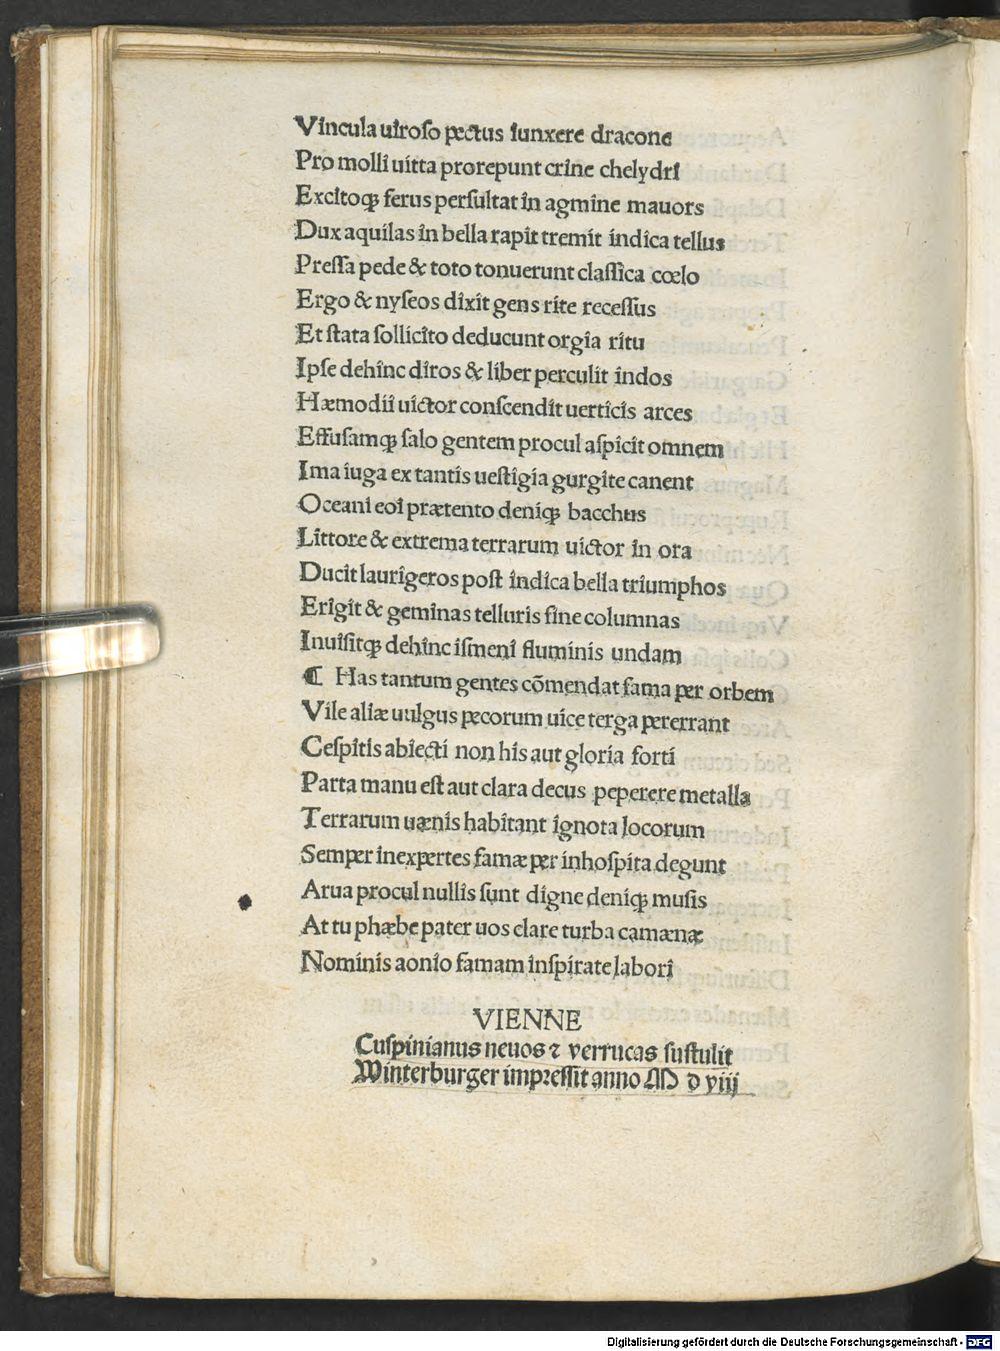 Vincula uiroſo pectus iunxere dracone
Pro molli uitta prorepunt crine chelydri
Excitoqꝫ ferus perſultat in agmine mauors
Dux aquilas in bella rapit tremit indica tellus
Preſſa pede & toto tonuerunt claſſica cœlo
Ergo & nyſeos dixit gens rite receſſus
Et ſtata ſollicito deducunt orgia ritu
Ipſe dehinc diros & liber perculit indos
Hæmodii uictor conſcendit uerticis arces
Effuſamqꝫ ſalo gentem procul aſpicit omnem
Ima iuga ex tantis ueſtigia gurgite canent
Oceani eoi prætento deniqꝫ bacchus
Littore & extrema terrarum uictor in ora
Ducit laurigeros poſt indica bella triumphos
Erigit & geminas telluris fine columnas
Inuiſitqꝫ dehinc iſmeni fluminis undam
¶ Has tantum gentes cõmendat fama per orbem
Vile aliæ uulgus pecorum uice terga pererrant
Ceſpitis abiecti non his aut gloria forti
Parta manu eſt aut clara decus peperere metalla
Terrarum uænis habitant ignota locorum
Semper inexpertes famæ per inhoſpita degunt
Arua procul nullis ſunt digne deniqꝫ muſis
At tu phæbe pater uos clare turba camænæ
Nominis aonio famam inſpirate labori
VIENNE
Cuſpinianus neuos ⁊ verrucas ſuſtulit
Winterburger impreſſit anno M D viij
Digitalisierung gefördert durch die Deutsche Forschungsgemeinschaft - DFG